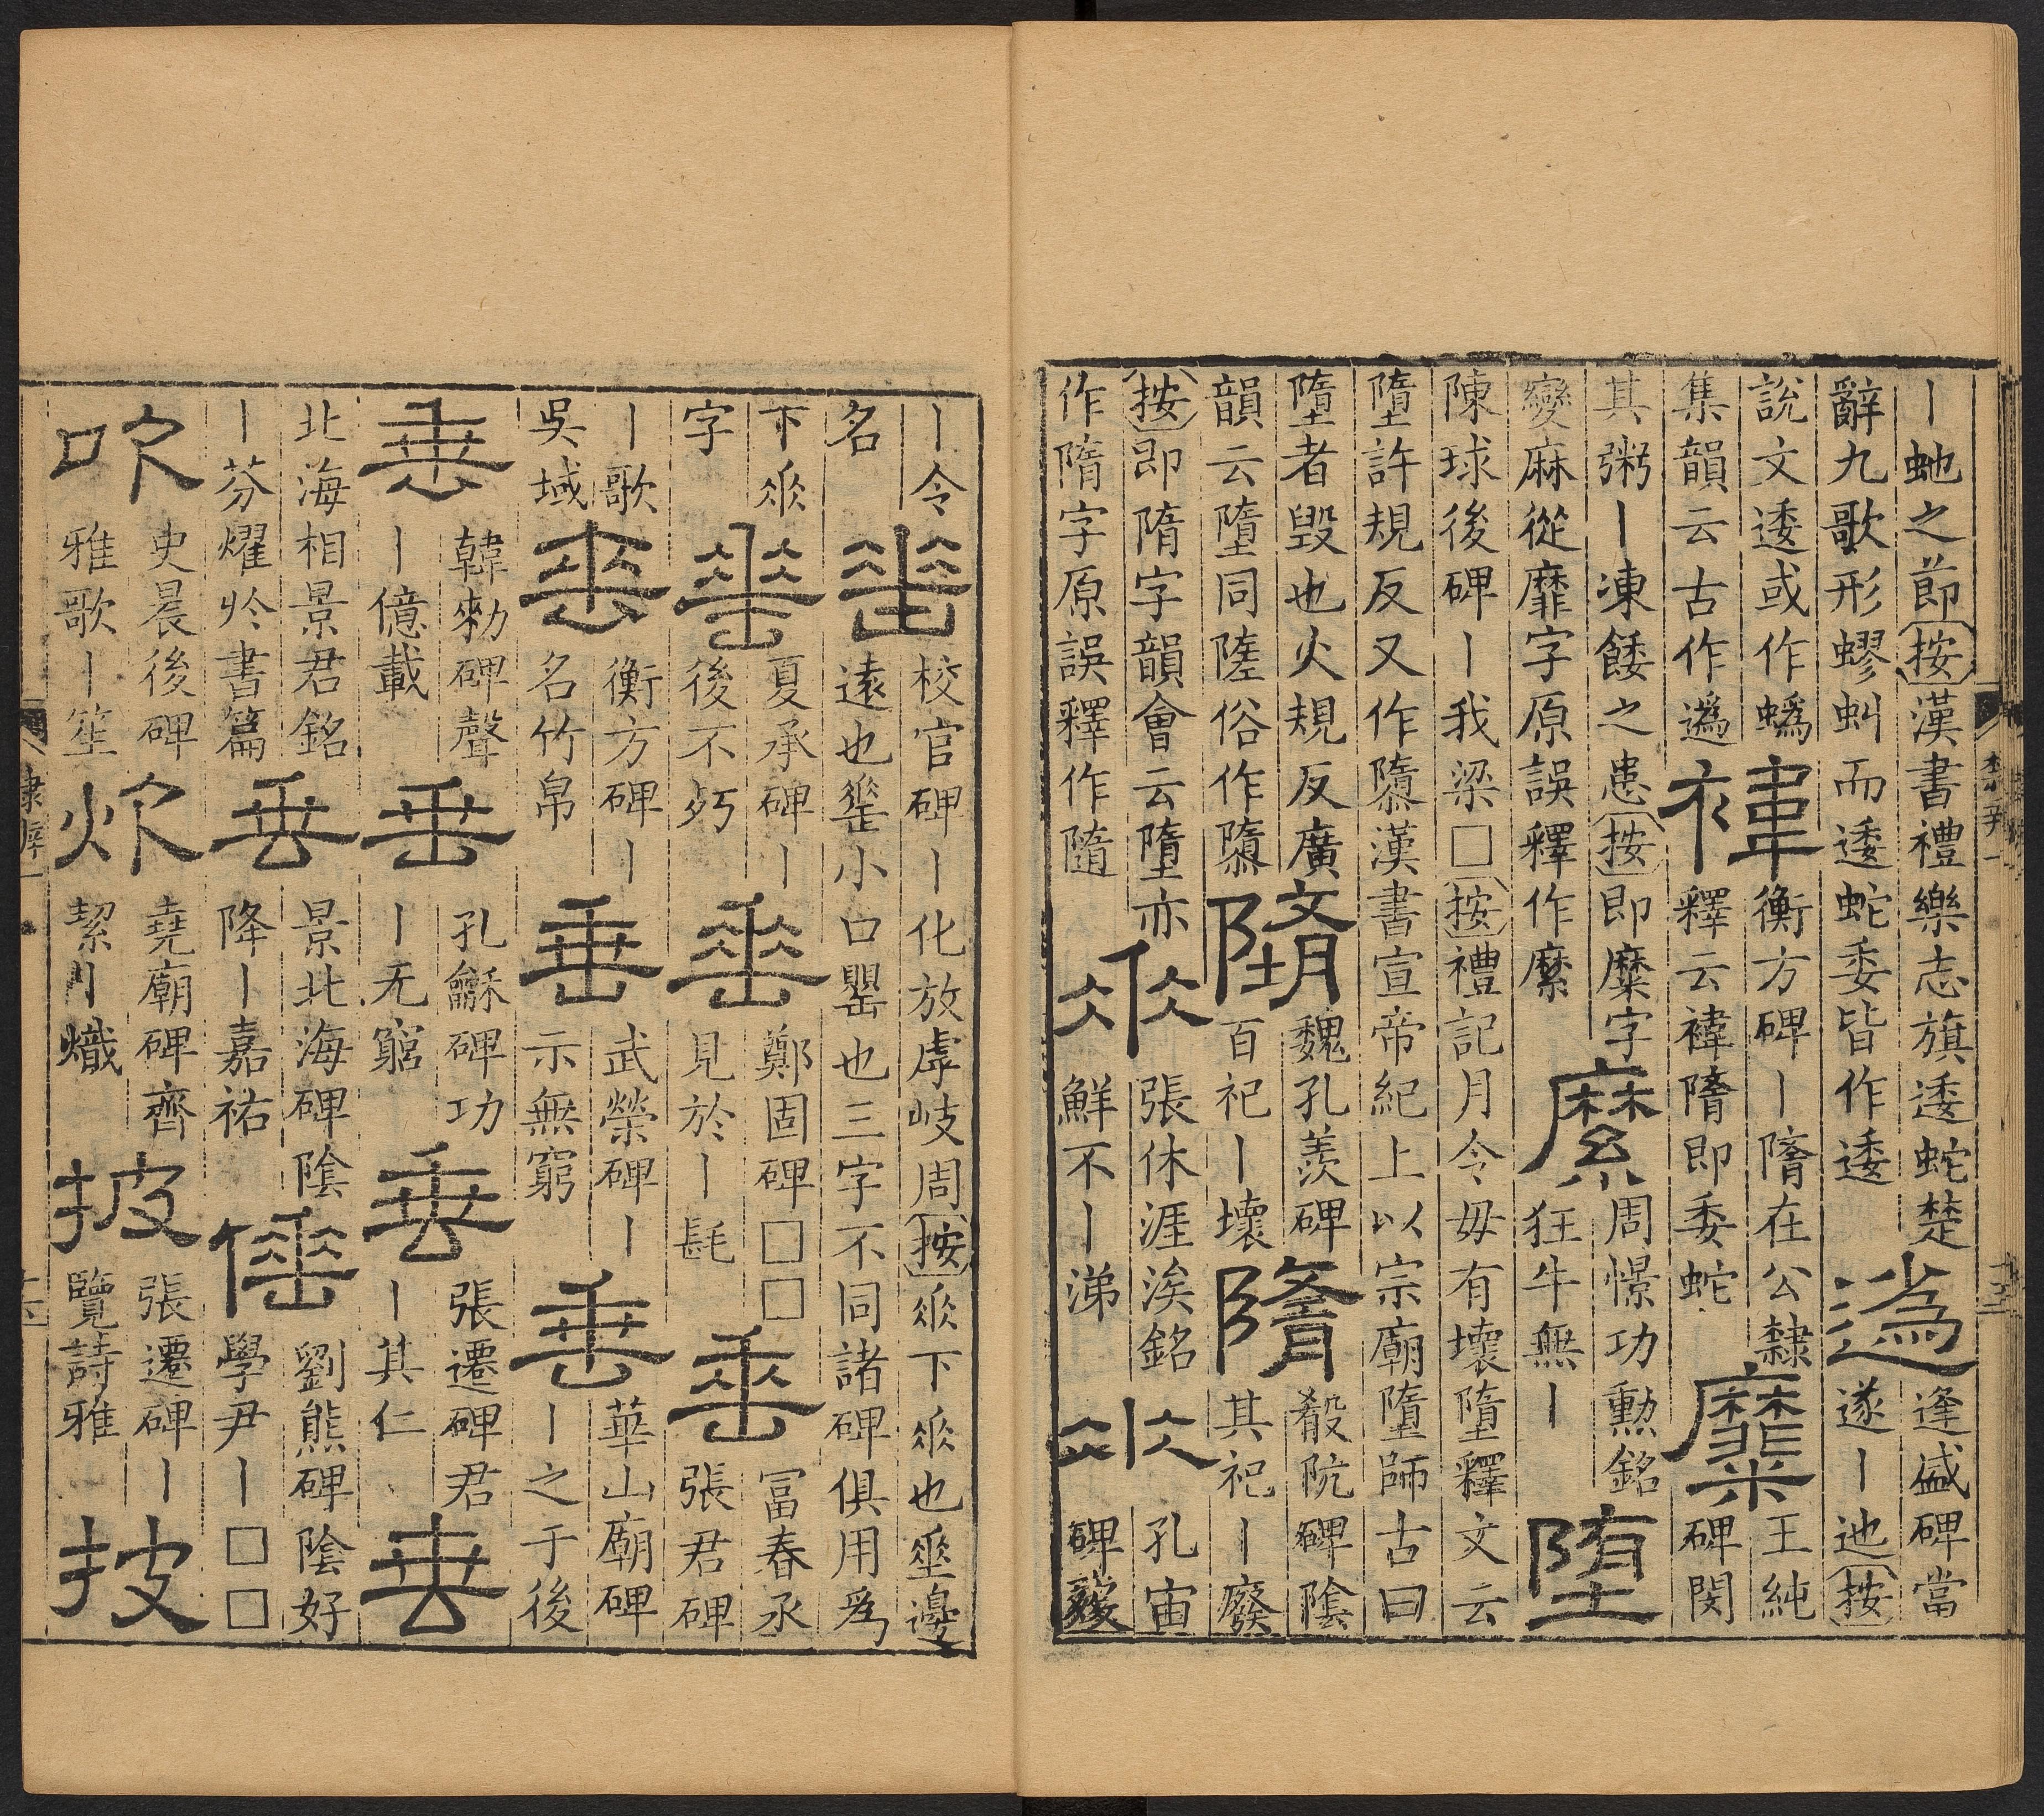 ｜虵之節按漢書禮樂志旗逶蛇楚
辭九歌形蟉虯而逶蛇委皆作逶
逢盛碑當
遂｜迆按
說文逶或作蟡
集韻云古作
褘
衡方碑｜隋在公隸
釋云褘隋即委蛇
糜
王純
碑閔
其粥｜凍餧之患按即糜字
變麻從靡字原誤釋作縻
縻
周憬功勳銘
狂牛無｜
堕
陳球後碑｜我梁□按禮記月令毋有壞墮釋文云
墮許規反又作隳漢書宣帝紀上以宗廟墮師古曰
墮者毀也火規反廣
韻云墮同隓俗作隳
隋
魏孔羨碑
百祀｜壞
隋
殽阬碑陰
其祀｜廢
按即隋字韻會云墮亦
作隋字原誤釋作隨
𠂹
張休涯涘銘
鮮不｜涕
𠂹
孔宙
碑
｜令
名
垂
校官碑｜化放虖岐周按𠂹下𠂹也埀邊
遠也小口罌也三字不同諸碑俱用爲
下𠂹
字
垂
夏承碑｜
後不朽
垂
鄭固碑□□
見於｜髦
垂
冨春丞
張君碑
｜歌
吳域
垂
衡方碑｜
名竹帛
垂
武榮碑｜
示無窮
垂
華山廟碑
｜之于後
垂
韓勑碑聲
｜億載
垂
孔龢碑功
｜无窮
垂
張遷碑君
｜其仁
垂
北海相景君銘
｜芬燿於書篇
垂
景北海碑陰
降｜嘉祐
倕
劉熊碑陰好
學尹｜□□
吹
史晨後碑
雅歌｜笙
炊
堯廟碑齊
絜｜熾
披
張遷碑｜
覽詩雅
披